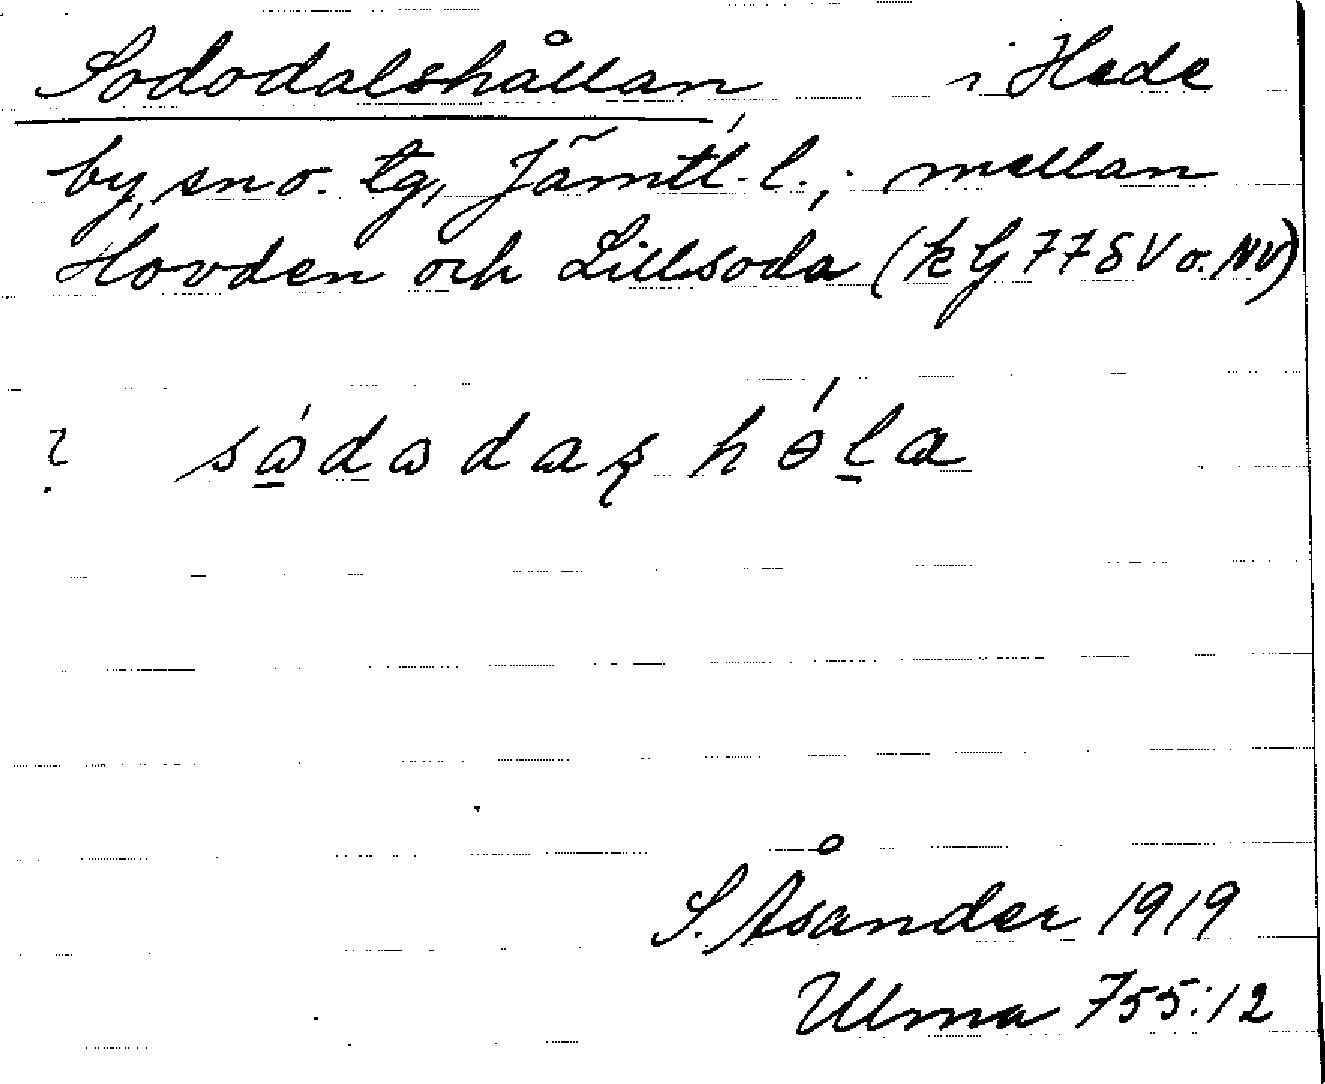 Sododalshållan, i Hede
by, sn o. tg, Jämtl. l.; mellan
Hovden och Lillsoda (kG 77 SV o. NV)
? sódadaʂ hóla
S. Åsander 1919
Ulma 755:12